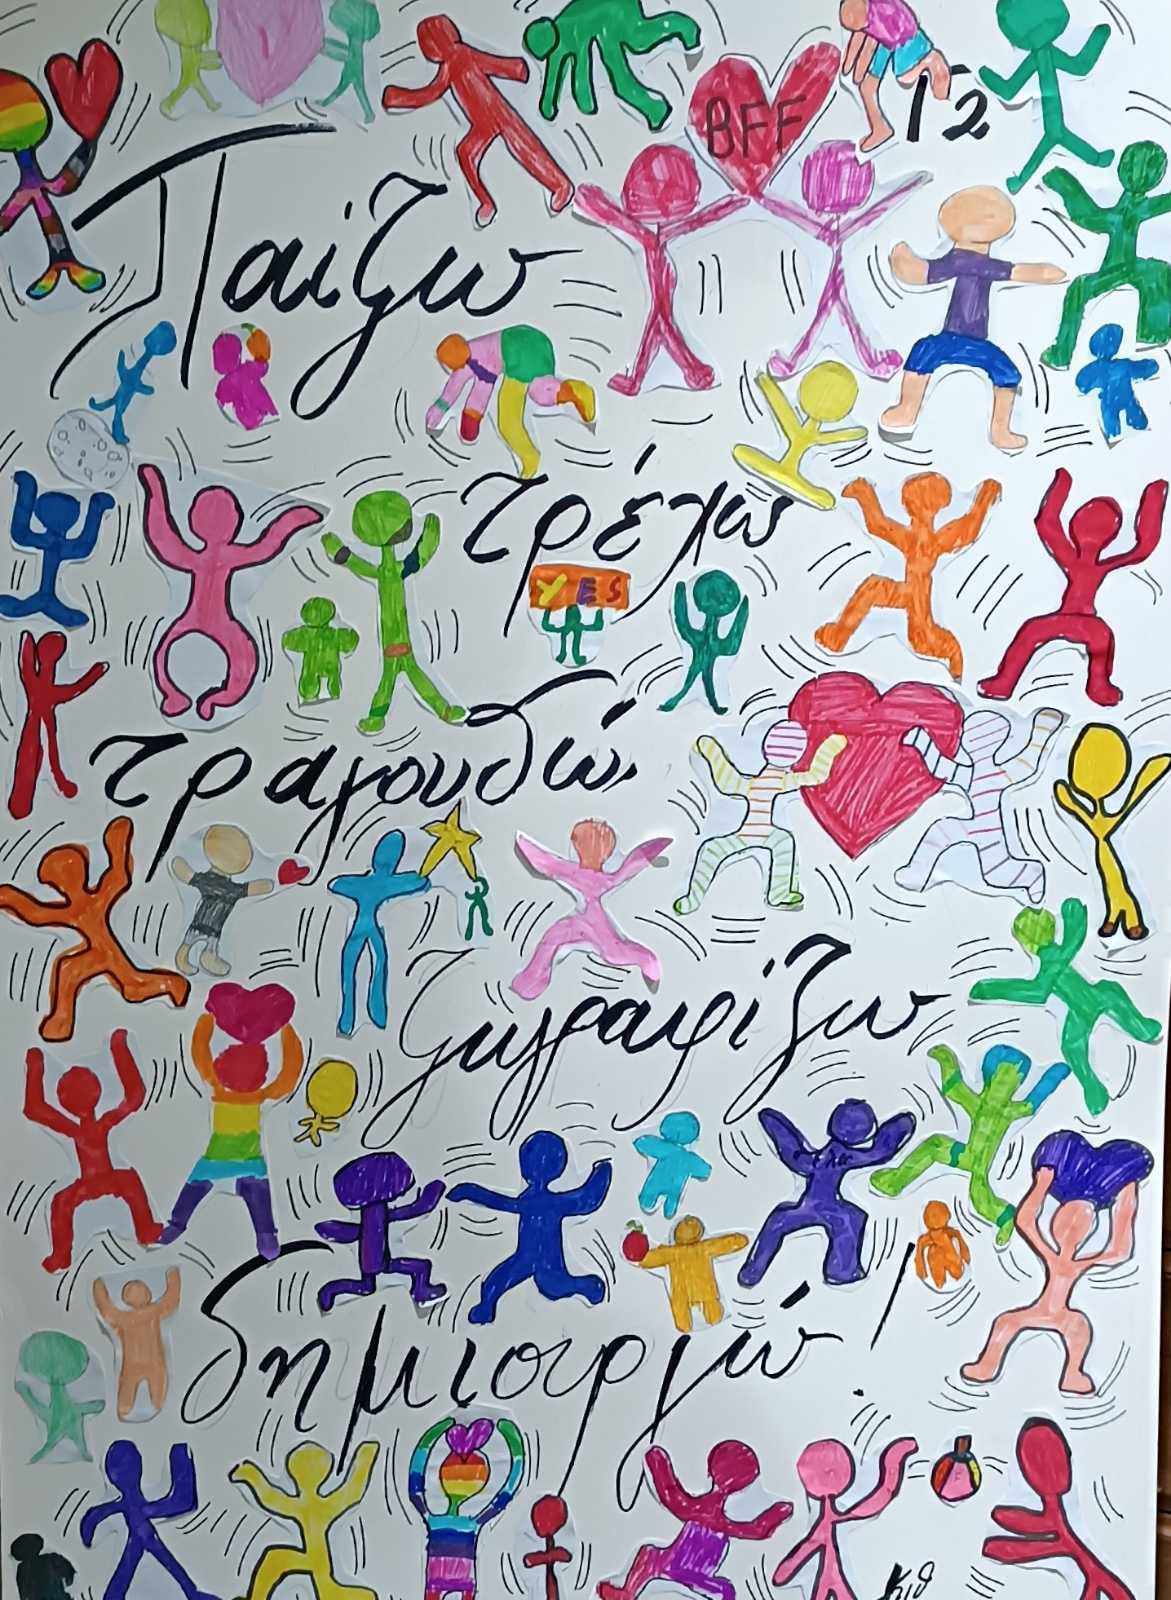 BFF
Γ2
Παίζω
τρέχω
YES
τραγουδώ
ζωγραφίζω
δημιουργώ!